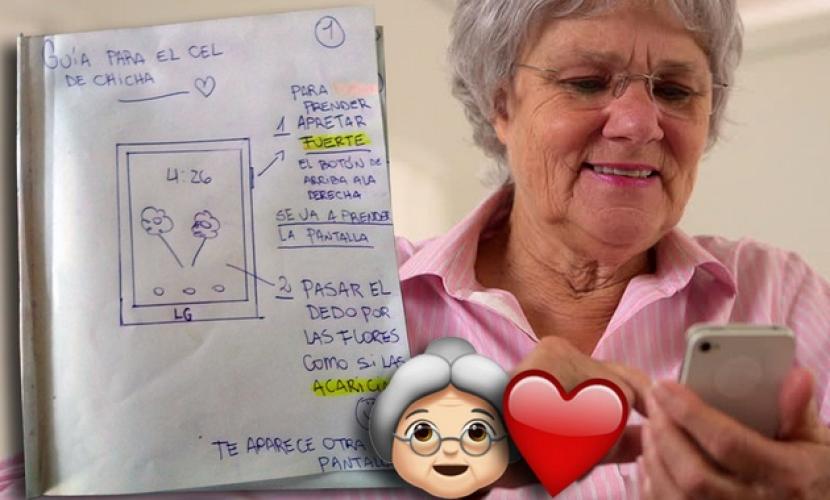 1
GUÍA PARA EL CEL
DE CHICHA
PARA
PRENDER
1 APRETAR
FUERTE
EL BOTÓN DE
ARRIBA A LA
DERECHA
SE VA A PRENDER
LA PANTALLA
4:26
LG
2 PASAR EL
DEDO POR
LAS FLORES
COMO SI LAS
ACARICIA
TE APARECE OTRA
PANTALL